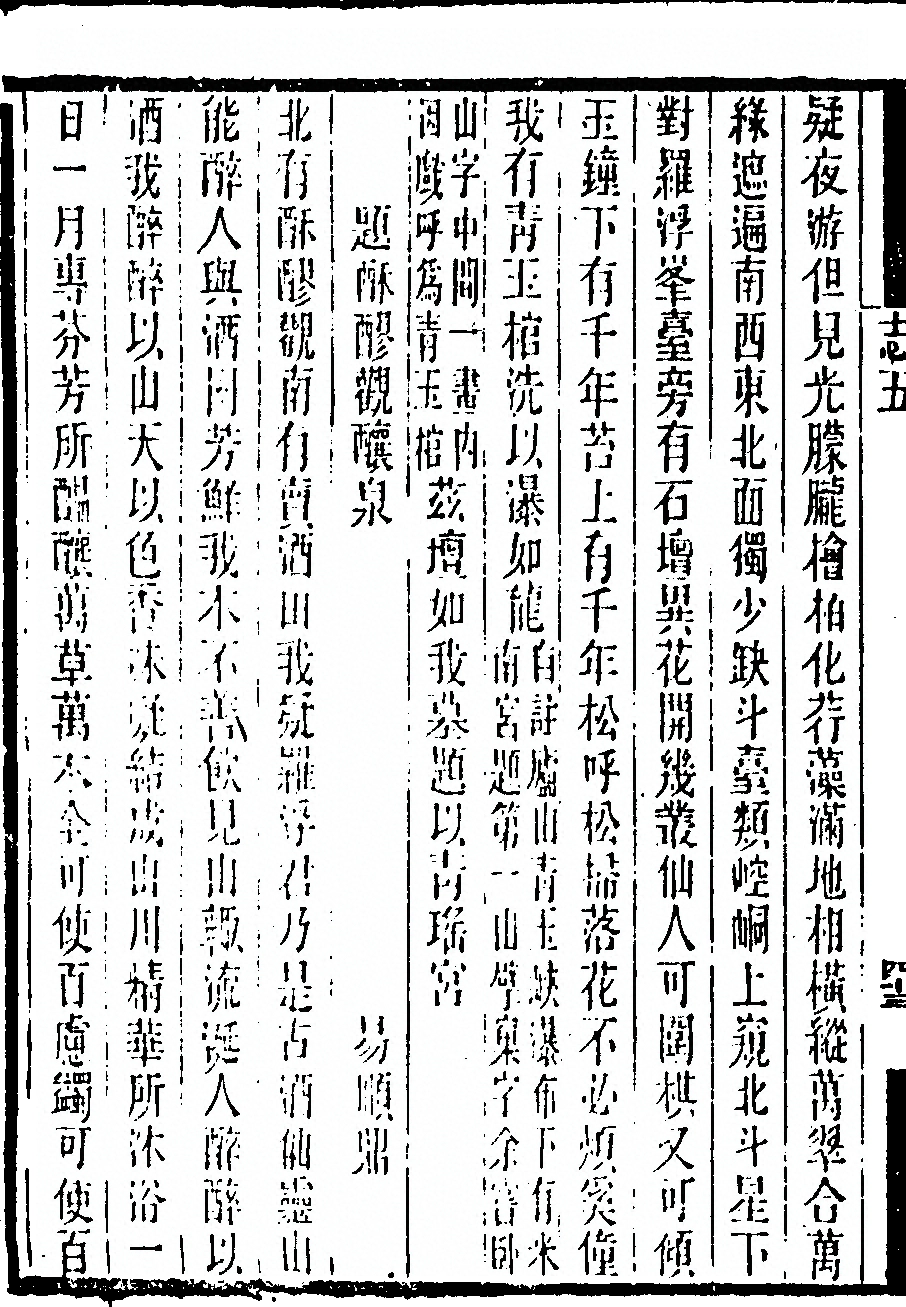 疑夜游但見光朦朧檜柏化荇藻滿地相橫縱萬翠合萬
綠遮遍南西東北面獨少缺斗臺類崆峒上窺北斗星下
對羅浮峯臺旁有石壇異花開幾叢仙人可圍棋又可傾
玉鐘下有千年苔上有千年松呼松掃落花不必煩奚僮
我有青玉棺洗以瀑如龍自註廬山青玉峽瀑布下有米
南宮題第一山擘窠字余嘗臥
山字中間一畫內
因戲呼爲青玉棺茲壇如我墓題以青瑤宮
題酥醪觀釀泉
易順鼎
北有酥醪觀南有賣酒田我疑羅浮君乃是古酒仙靈山
能醉人與酒同芳鮮我本不善飲見山輒流涎人醉醉以
酒我醉醉以山天以色香沐凝結成山川精華所沐浴一
日一月專芬芳所醞釀萬草萬木全可使百慮蠲可使百
志五
四十三